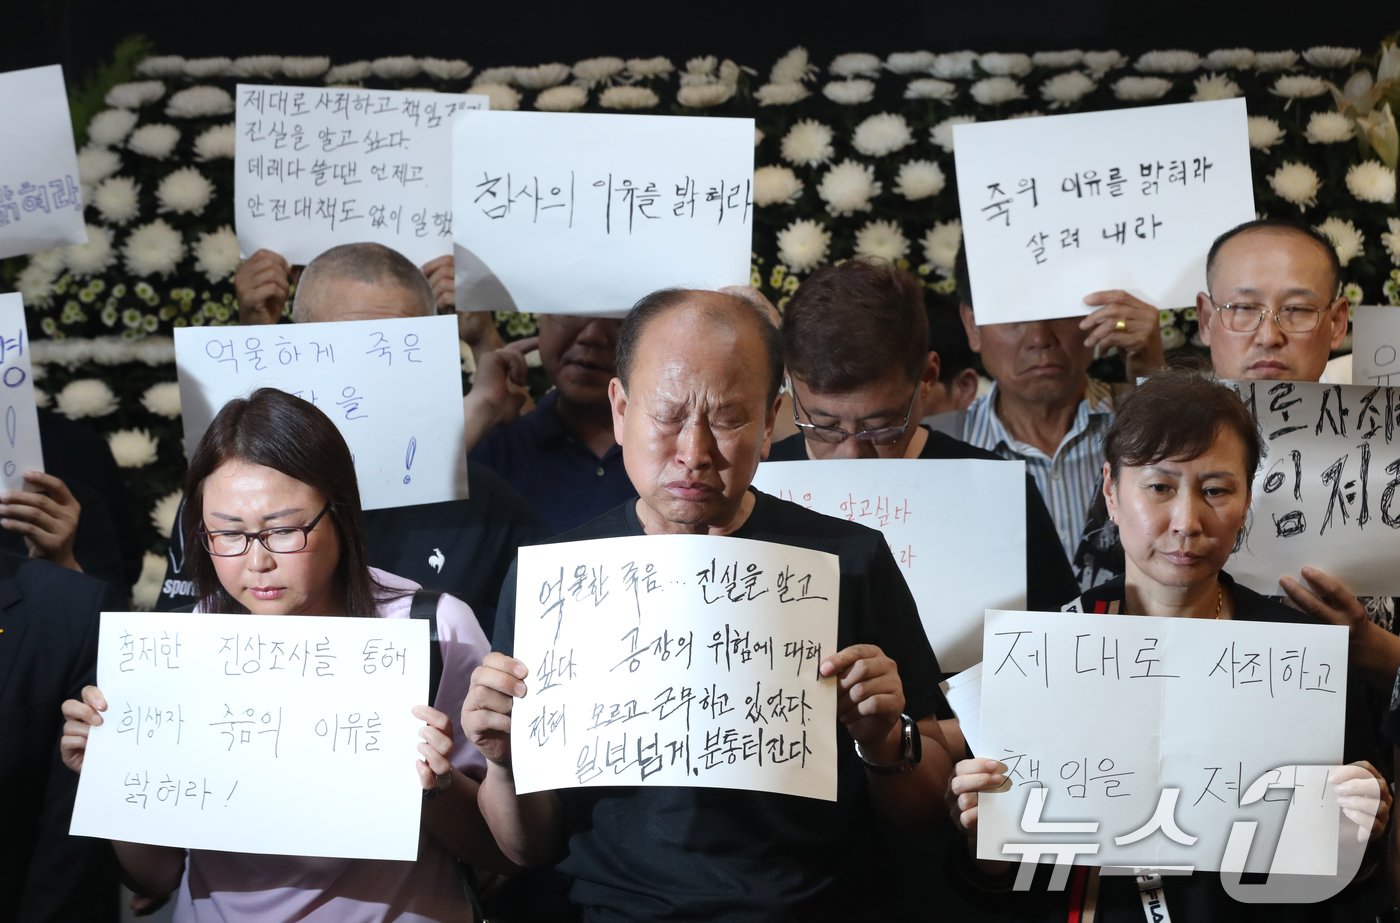 밝혀라
제대로 사죄하고 책임
진실을 알고 싶다.
데려다 쓸땐 언제고
안전대책도 없이 일했
참사의 이유를 밝혀라
죽의 이유를 밝혀라
살려 내라
억울하게 죽은
을
!
알고싶다
라
로 사죄
임져라
철저한 진상조사를 통해
희생자 죽음의 이유를
밝혀라!
억울한 죽음... 진실을 알고
싶다. 공장의 위험에 대해
전혀 모르고 근무하고 있었다.
일년넘게, 분통터진다
제대로 사죄하고
책임을 져라!
sports
FILA
뉴스1